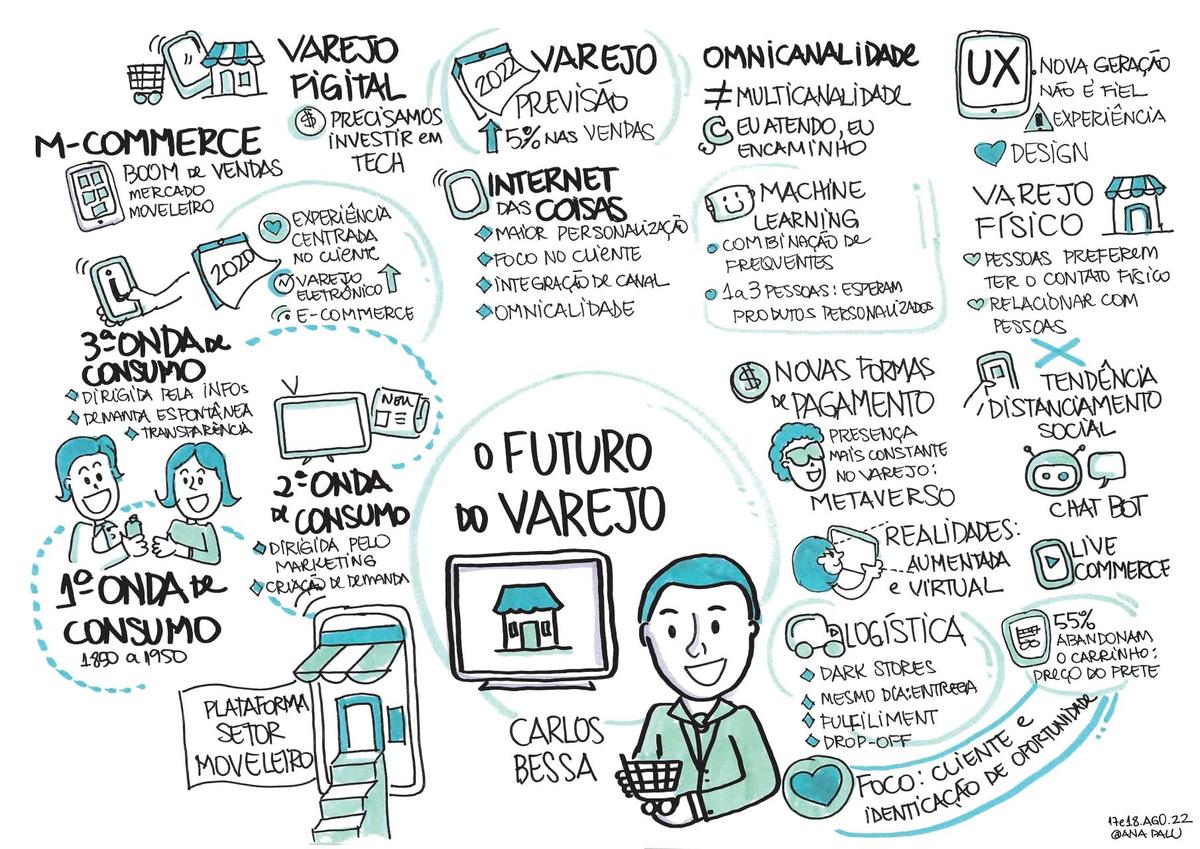 VAREJO
FIGITAL
PRECISAMOS
INVESTIR em
TECH
M-COMMERCE
BOOM de VENDAS
MERCADO
MOVELEIRO
2022
VAREJO
PREVISÃO
5% NAS VENDAS
OMNICANALIDADE
≠ MULTICANALIDADE
EU ATENDO, EU
ENCAMINHO
UX
NOVA GERAÇÃO
NÃO É FIEL
EXPERIÊNCIA
DESIGN
2020
EXPERIÊNCIA
CENTRADA
NO CLIENTE
VAREJO
ELETRÔNICO
E-COMMERCE
INTERNET
DAS COISAS
MAIOR PERSONALIZAÇÃO
FOCO NO CLIENTE
INTEGRAÇÃO DE CANAL
OMNICALIDADE
MACHINE
LEARNING
COMBINAÇÃO DE
FREQUENTES
1a3 PESSOAS: ESPERAM
PRODUTOS PERSONALIZADOS
VAREJO
FÍSICO
PESSOAS PREFEREM
TER O CONTATO FÍSICO
RELACIONAR COM
PESSOAS
3ª ONDA de
CONSUMO
DIRIGIDA PELA INFOs
DEMANDA ESPONTÂNEA
TRANSPARÊNCIA
NEW
2ª ONDA
de CONSUMO
DIRIGIDA PELO
MARKETING
CRIAÇÃO DE DEMANDA
1º ONDA de
CONSUMO
1850 a 1950
PLATAFORMA
SETOR
MOVELEIRO
O FUTURO
DO VAREJO
CARLOS
BESSA
NOVAS FORMAS
de PAGAMENTO
PRESENÇA
MAIS CONSTANTE
NO VAREJO:
METAVERSO
REALIDADES:
AUMENTADA
e VIRTUAL
TENDÊNCIA
DISTANCIAMENTO
SOCIAL
CHAT BOT
LIVE
COMMERCE
LOGÍSTICA
DARK STORES
MESMO DIA: ENTREGA
FULFILIMENT
DROP-OFF
55%
ABANDONAM
O CARRINHO:
PREÇO DO FRETE
FOCO: CLIENTE e
IDENTICAÇÃO DE OPORTUNIDADE
17e18.AGO.22
@ANA PALU